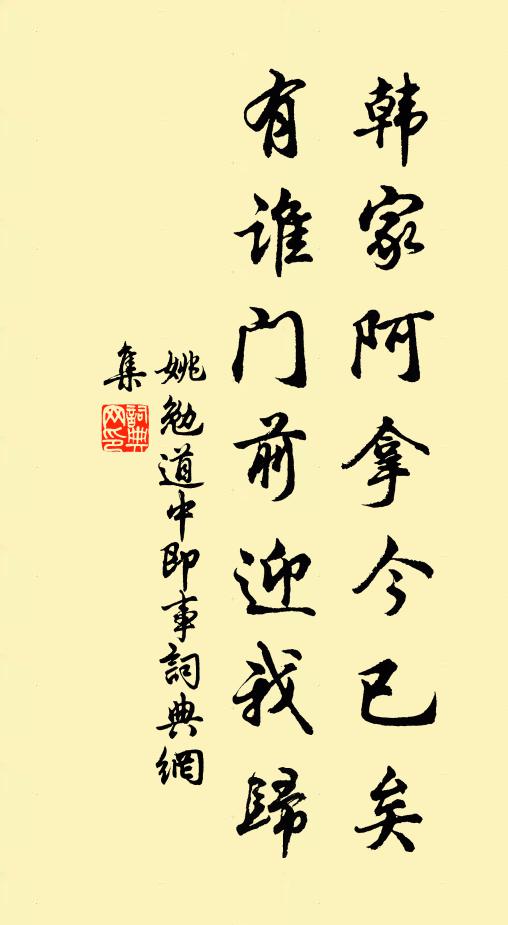 韩家阿拿今已矣
有谁门前迎我歸
姚勉道中即事詞典網
集
詞典網印